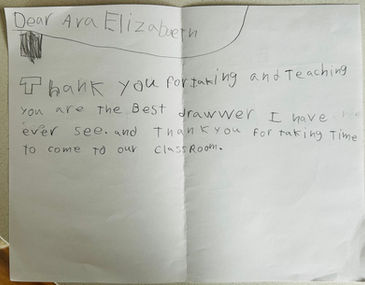 Dear Ara Elizabeth
Thank you for taking and Teaching
you are The Best drawwer I have
ever see. and Thank you for taking Time
To come To our classRoom.